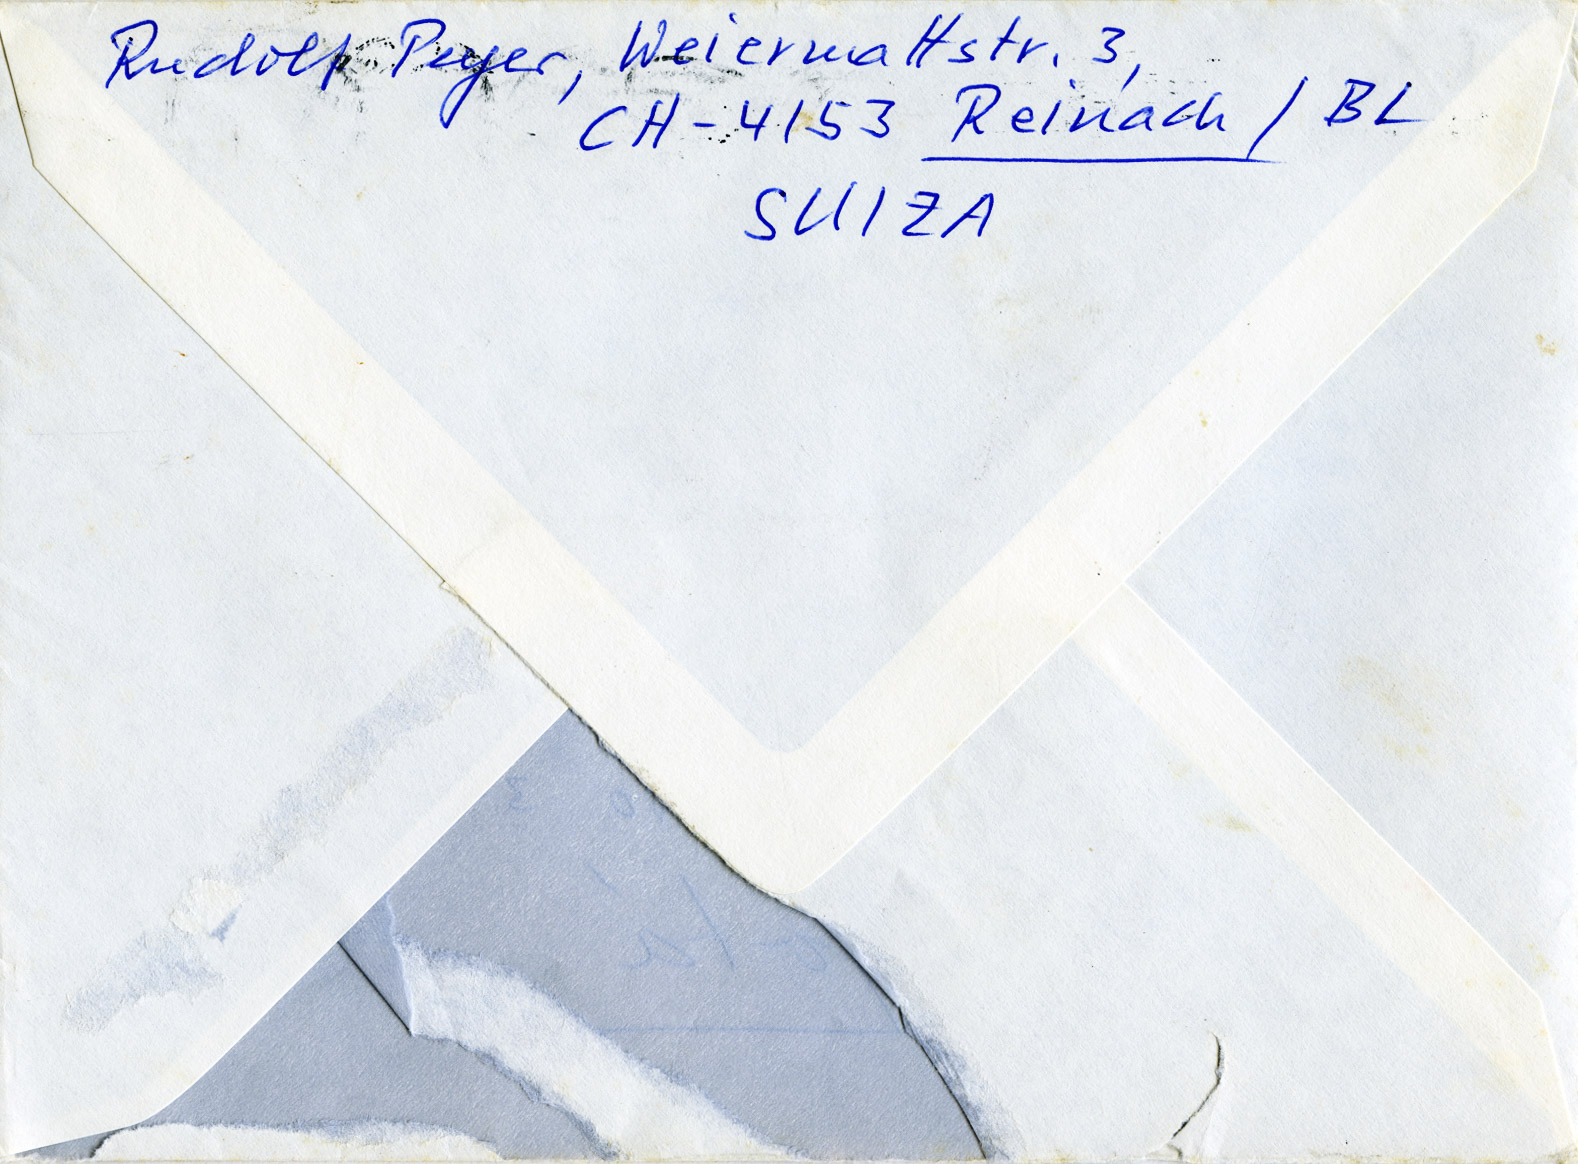 Rudolf Peyer, Weiermattstr. 3,
CH-4153 Reinach / BL
SUIZA